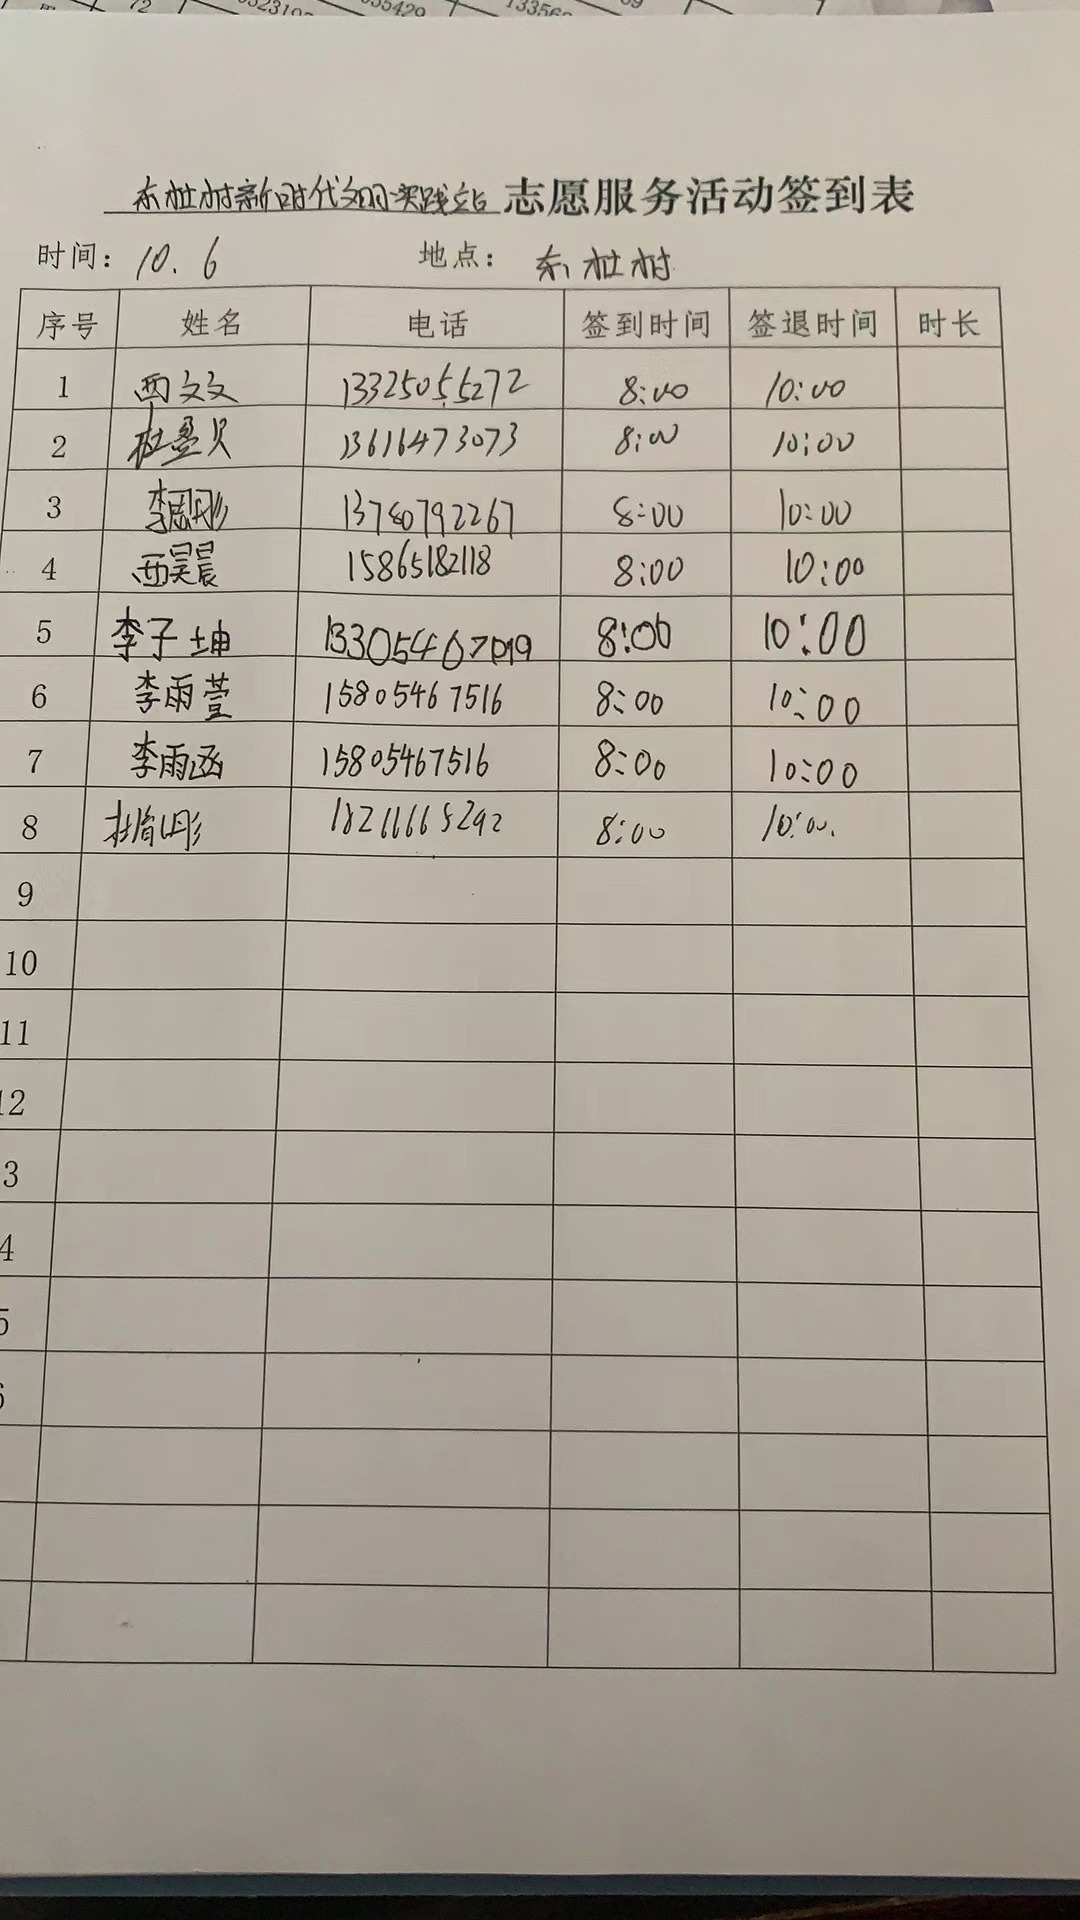 东杜村新时代文明实践站 志愿服务活动签到表
时间: 10.6 地点: 东杜村
序号 姓名 电话 签到时间 签退时间 时长
1 西文文 13325055272 8:00 10:00
2 杜盈贝 13616473073 8:00 10:00
3 李周彤 13780792267 8:00 10:00
4 西昊晨 15865182118 8:00 10:00
5 李子坤 8:00 10:00
6 李雨萱 15805467516 8:00 10:00
7 李雨函 15805467516 8:00 10:00
8 18266665292 8:00 10:00.
9
10
11
12
3
4
5
6